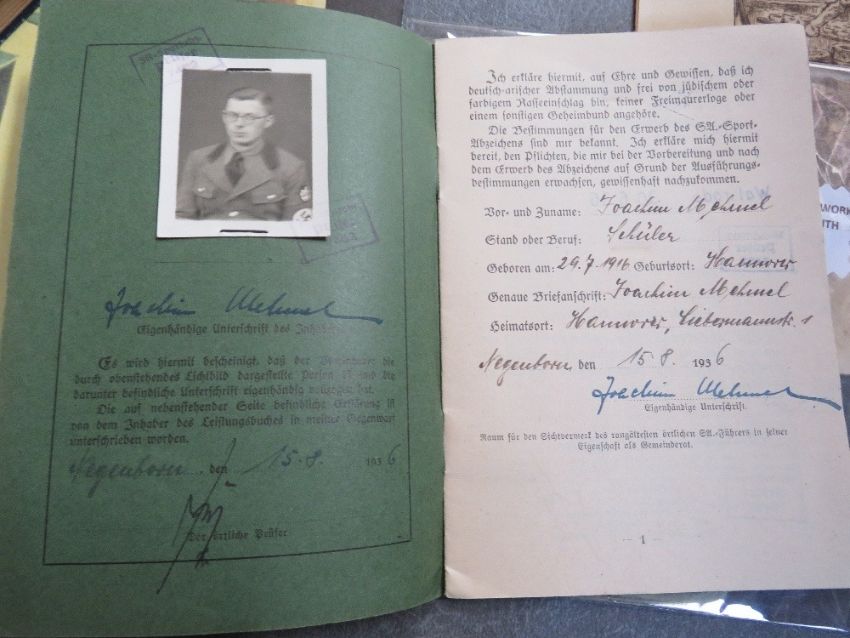 Joachim Mehmel
Eigenhändige Unterschrift des Inhabers
Es wird hiermit bescheinigt, daß der die
durch obenstehendes Lichtbild dargestellte Person ist und die
darunter befindliche Unterschrift eigenhändig vollzogen hat.
Die auf nebenstehender Seite befindliche Erklärung ist
von dem Inhaber des Leistungsbuches in meiner Gegenwart
unterschrieben worden.
Negenborn den 15.8. 1936
Der örtliche Prüfer
Ich erkläre hiermit, auf Ehre und Gewissen, daß ich
deutsch-arischer Abstammung und frei von jüdischem oder
farbigem Rasseeinschlag bin, keiner Freimaurerloge oder
einem sonstigen Geheimbund angehöre.
Die Bestimmungen für den Erwerb des SA.-Sport-
Abzeichens sind mir bekannt. Ich erkläre mich hiermit
bereit, den Pflichten, die mir bei der Vorbereitung und nach
dem Erwerb des Abzeichens auf Grund der Ausführungs-
bestimmungen erwachsen, gewissenhaft nachzukommen.
Vor- und Zuname: Joachim Mehmel
Stand oder Beruf: Schüler
Geboren am: 29.7.1916 Geburtsort: Hannover
Genaue Briefanschrift: Joachim Mehmel
Heimatsort: Hannover, Liebermannstr. 1
Negenborn den 15.8. 1936
Joachim Mehmel
Eigenhändige Unterschrift.
Raum für den Sichtvermerk des rangältesten örtlichen SA.-Führers in seiner
Eigenschaft als Gemeinderat.
— 1 —